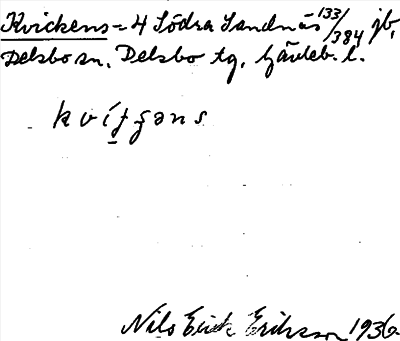 Kvickens = 4 Södra Sandnäs 133/384 jb,
Delsbo sn, Delsbo tg, Gävleb. l.
Nils Erik Eriksson 1936